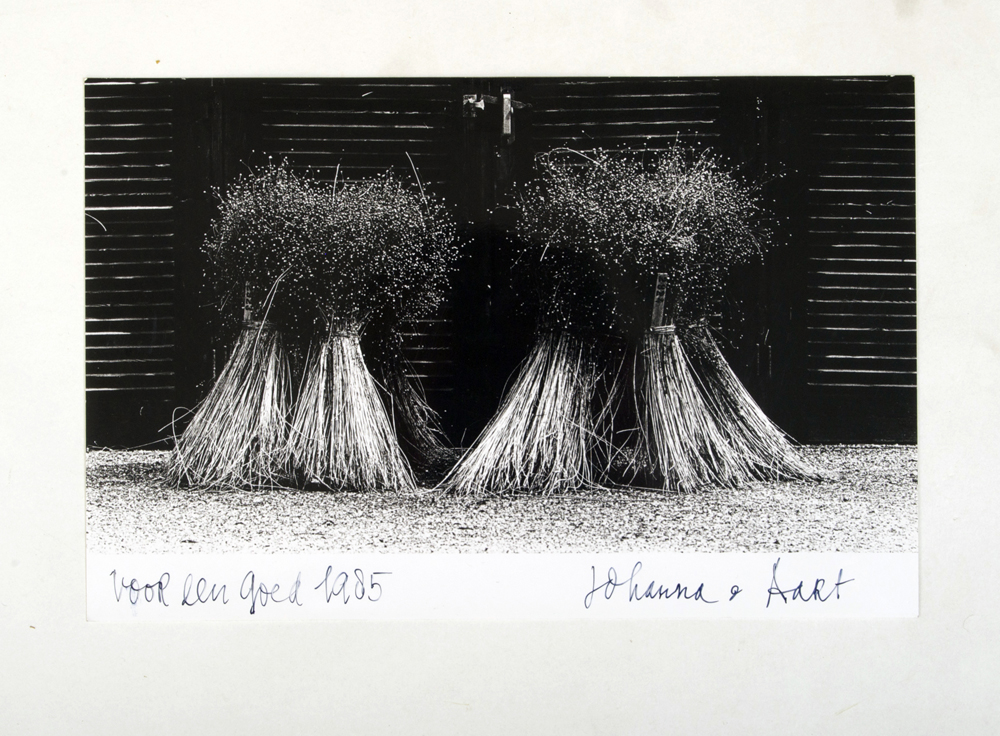 voor een goed 1985
Johanna & Aart